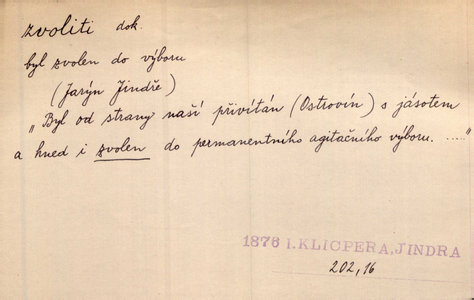 zvoliti dok.
byl zvolen do výboru
(Jarýn Jindře)
„Byl od strany naší přivítán (Ostrovín) s jásotem
a hned i zvolen do permanentního agitačního výboru. ....."
1876 I. KLICPERA, JINDRA
202, 16